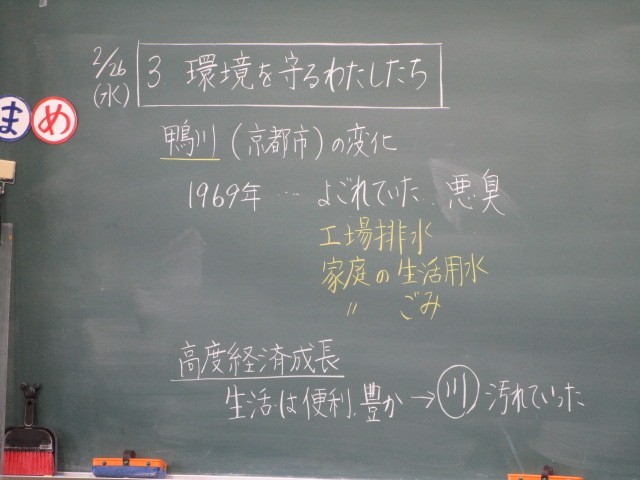 2/26
(水)
3. 環境を守るわたしたち
ま
め
鴨川(京都市)の変化
1969年…よごれていた.悪臭
工場排水
家庭の生活用水
〃 ごみ
高度経済成長
生活は便利.豊か→川汚れていった